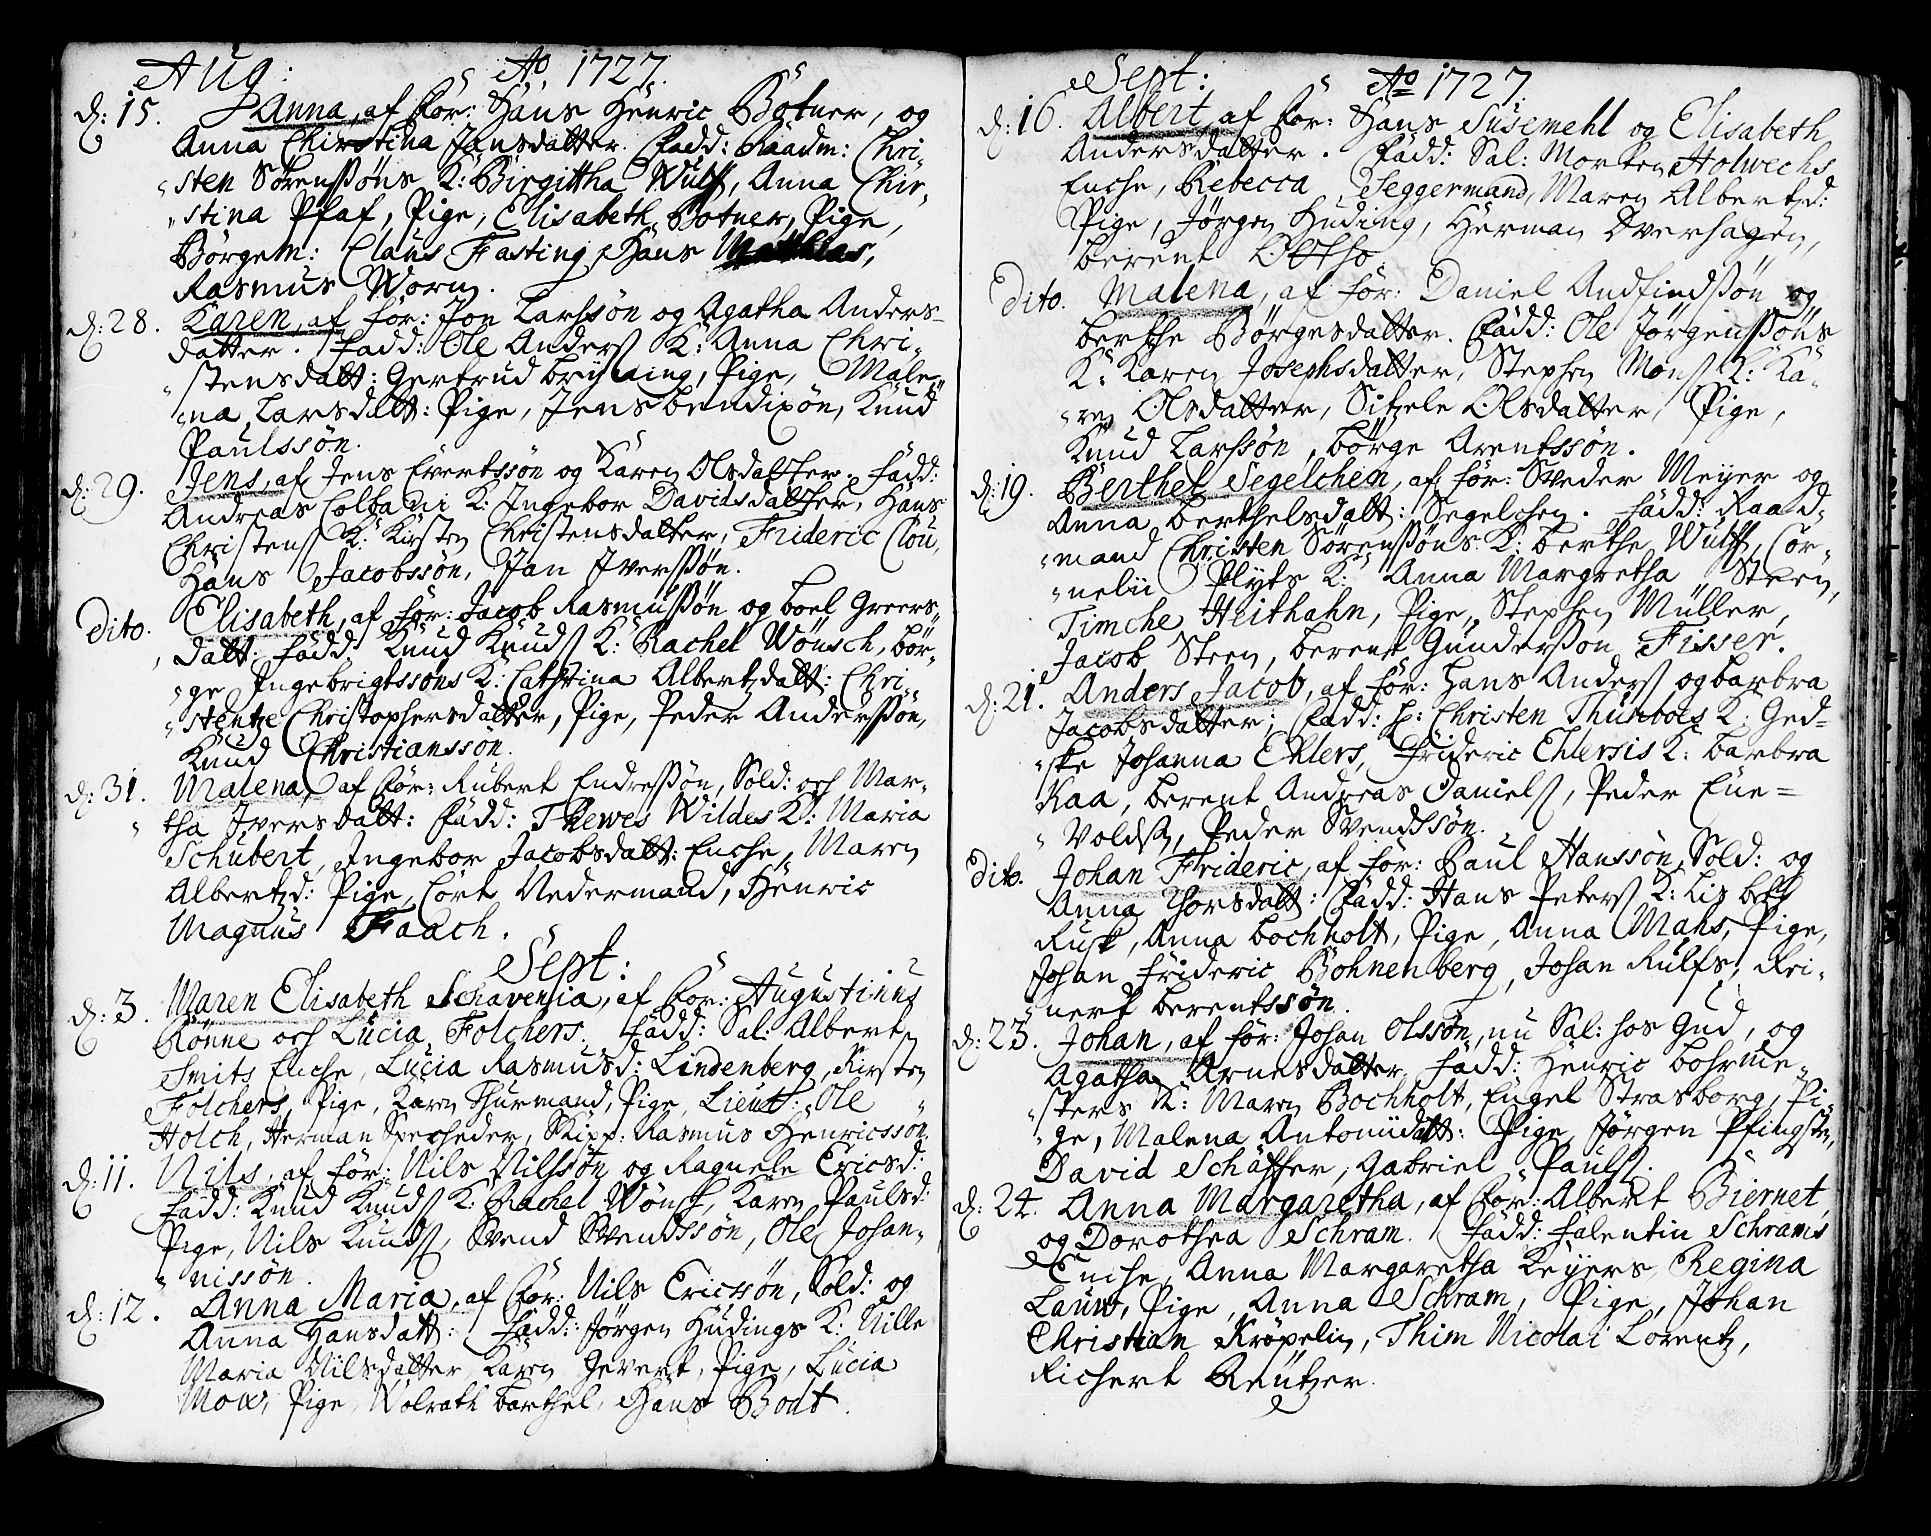 Aug: Ao 1727.
d: 15. Anna, af For: Hans Henric Bötner, og
Anna Chirstina Jansdatter. Fadd: Raadm: Chri-
sten Sörenssöns K: Birgittha Wulf, Anna Chir-
stina Pfaf, Pige, Elisabeth Botner, Pige,
Börgem: Claus Fasting, Hans Matthias,
Rasmus Worm.
d: 28. Karen, af for: Jon Larssön og Agatha Anders-
datter. Fadd: Ole Anders K: Anna Chri-
stensdatt: Gertrud Bryning, Pige, Male-
na Larsdatt: Pige, Jens bendixön, Knud
Paulssön.
d: 29. Jens, af Jens Evertssön og Karen Olsdatter. Fadd:
Andreas Colbani K: Ingebor Davidsdatter, Hans
Christens K: Kirsten Christensdatter, Frideric Clou,
Hans Jacobssön, Jan Iverssön.
Dito. Elisabeth, af for: Jacob Rasmussön og boel Greers-
datt: fadd: Knud Knuds K: Rachel Wönsch, bör-
ge Ingebrigtssöns K: Cathrina Albertzdatt: Chri-
stentze Christophersdatter, Pige, Peder Anderssön,
Knud Christianssön.
d: 31. Malena, af For: Rubert Endressön, Sold: och Mar-
tha Iversdatt: Fadd: Thewes Wildes K: Maria
Schubert, Ingebor Jacobsdatt: Enche, Maren
Albertzd: Pige, Cort Nedermand, Henric
Magnus Faach.
Sept:
d: 3. Maren Elisabeth Schavenia, af For: Augustinus
Rönne och Lucia Folchers. Fadd: Sal: Albert
Smits Enche, Lucia Rasmusd: Lindenberg, Kirsten
Folchers, Pige, Karen Thurmand, Pige, Lieut: Ole
Holch, Herman Specheder, Skipp: Rasmus Henricssön.
d: 11. Nils, af for: Nils Nilssön og Ragnele Ericsd:
Fadd: Knud Knuds K: Rachel Wönsch, Karen Paulsd:
Pige, Nils Knuds, Svend Svendssön, Ole Johan-
nissön.
d: 12. Anna Maria, af For: Nils Ericsön, Sold: og
Anna Hansdatt: Fadd: Jörgen Hudings K: Nille
Maria Nilsdatter Karen Gevert, Pige, Lucia
Mow, Pige, Wolrath barthel, Hans Bont.
Sept: Ao 1727.
d: 16. Albert, af For: Hans Susemehl og Elisabeth
Andersdatter. Fadd: Sal: Morten Holwechs
Enche, Rebecca Seggermand, Maren Albertzd:
Pige, Jörgen Huding, Herman Overhagen,
berent Ottho.
Dito. Malena, af for: Daniel Andfindssön og
berthe Börgesdatter. Fadd: Ole Jörgenssöns
K: Karen Josephsdatter, Stephen Mons K: Ka-
ren Olsdatter, Sitzele Olsdatter, Pige,
Knud Larssön, börge Arentssön.
d: 19. Berthel Segelchen, af for: Sveder Meyer og
Anna berthelsdatt: Segelchen. Fadd: Raad-
mand Christen Sörenssöns K: berthe Wulf, Cor-
nelii Plyts K: Anna Margretha Steen,
Timche Heithahn, Pige, Stephen Müller,
Jacob Steen, berent Gunderson Fisser.
d: 21. Anders Jacob, af for: Hans Anders og barbra
Jacobsdatter; Fadd: H: Christen Thunboes K: Ged-
ske Johanna Ehlers, Frideric Ehlersis K: barbra
Kaa, berent Andreas Daniels, Peder Ene-
Volds, Peder Svendssön.
Dito. Johan Frideric, af for: Paul Hanssön, Sold: og
Anna Thorsdatt: Fadd: Hans Peters K: Lisbeth
Rusk, Anna bochholt, Pige, Anna Mahs, Pige,
Johan Frideric Böhnenberg, Johan Rulfs, Rei-
nert berentssön.
d: 23. Johan, af for: Johan Olssön, nu Sal: hos Gud, og
Agatha Arnesdatter. Fadd: Henric bohrme-
sters K: Maren Bochholt, Engel Strasborg, Pi-
ge, Malena Antoniidatt: Pige, Jörgen Pfingsten,
David Schäffer, Gabriel Pauls.
d: 24. Anna Margaretha, af For: Albert Biernet,
og Dorothea Schram. Fadd: falentin Schrams
Enche, Anna Margaretha Reyers, Regina
Lauw, Pige, Anna Schram, Pige, Johan
Christian Kröpelin, Thim Nicolai Lorentz,
Richert Reutzer.